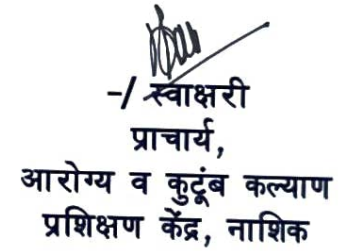 -/ स्वाक्षरी
प्राचार्य,
आरोग्य व कुटूंब कल्याण
प्रशिक्षण केंद्र, नाशिक